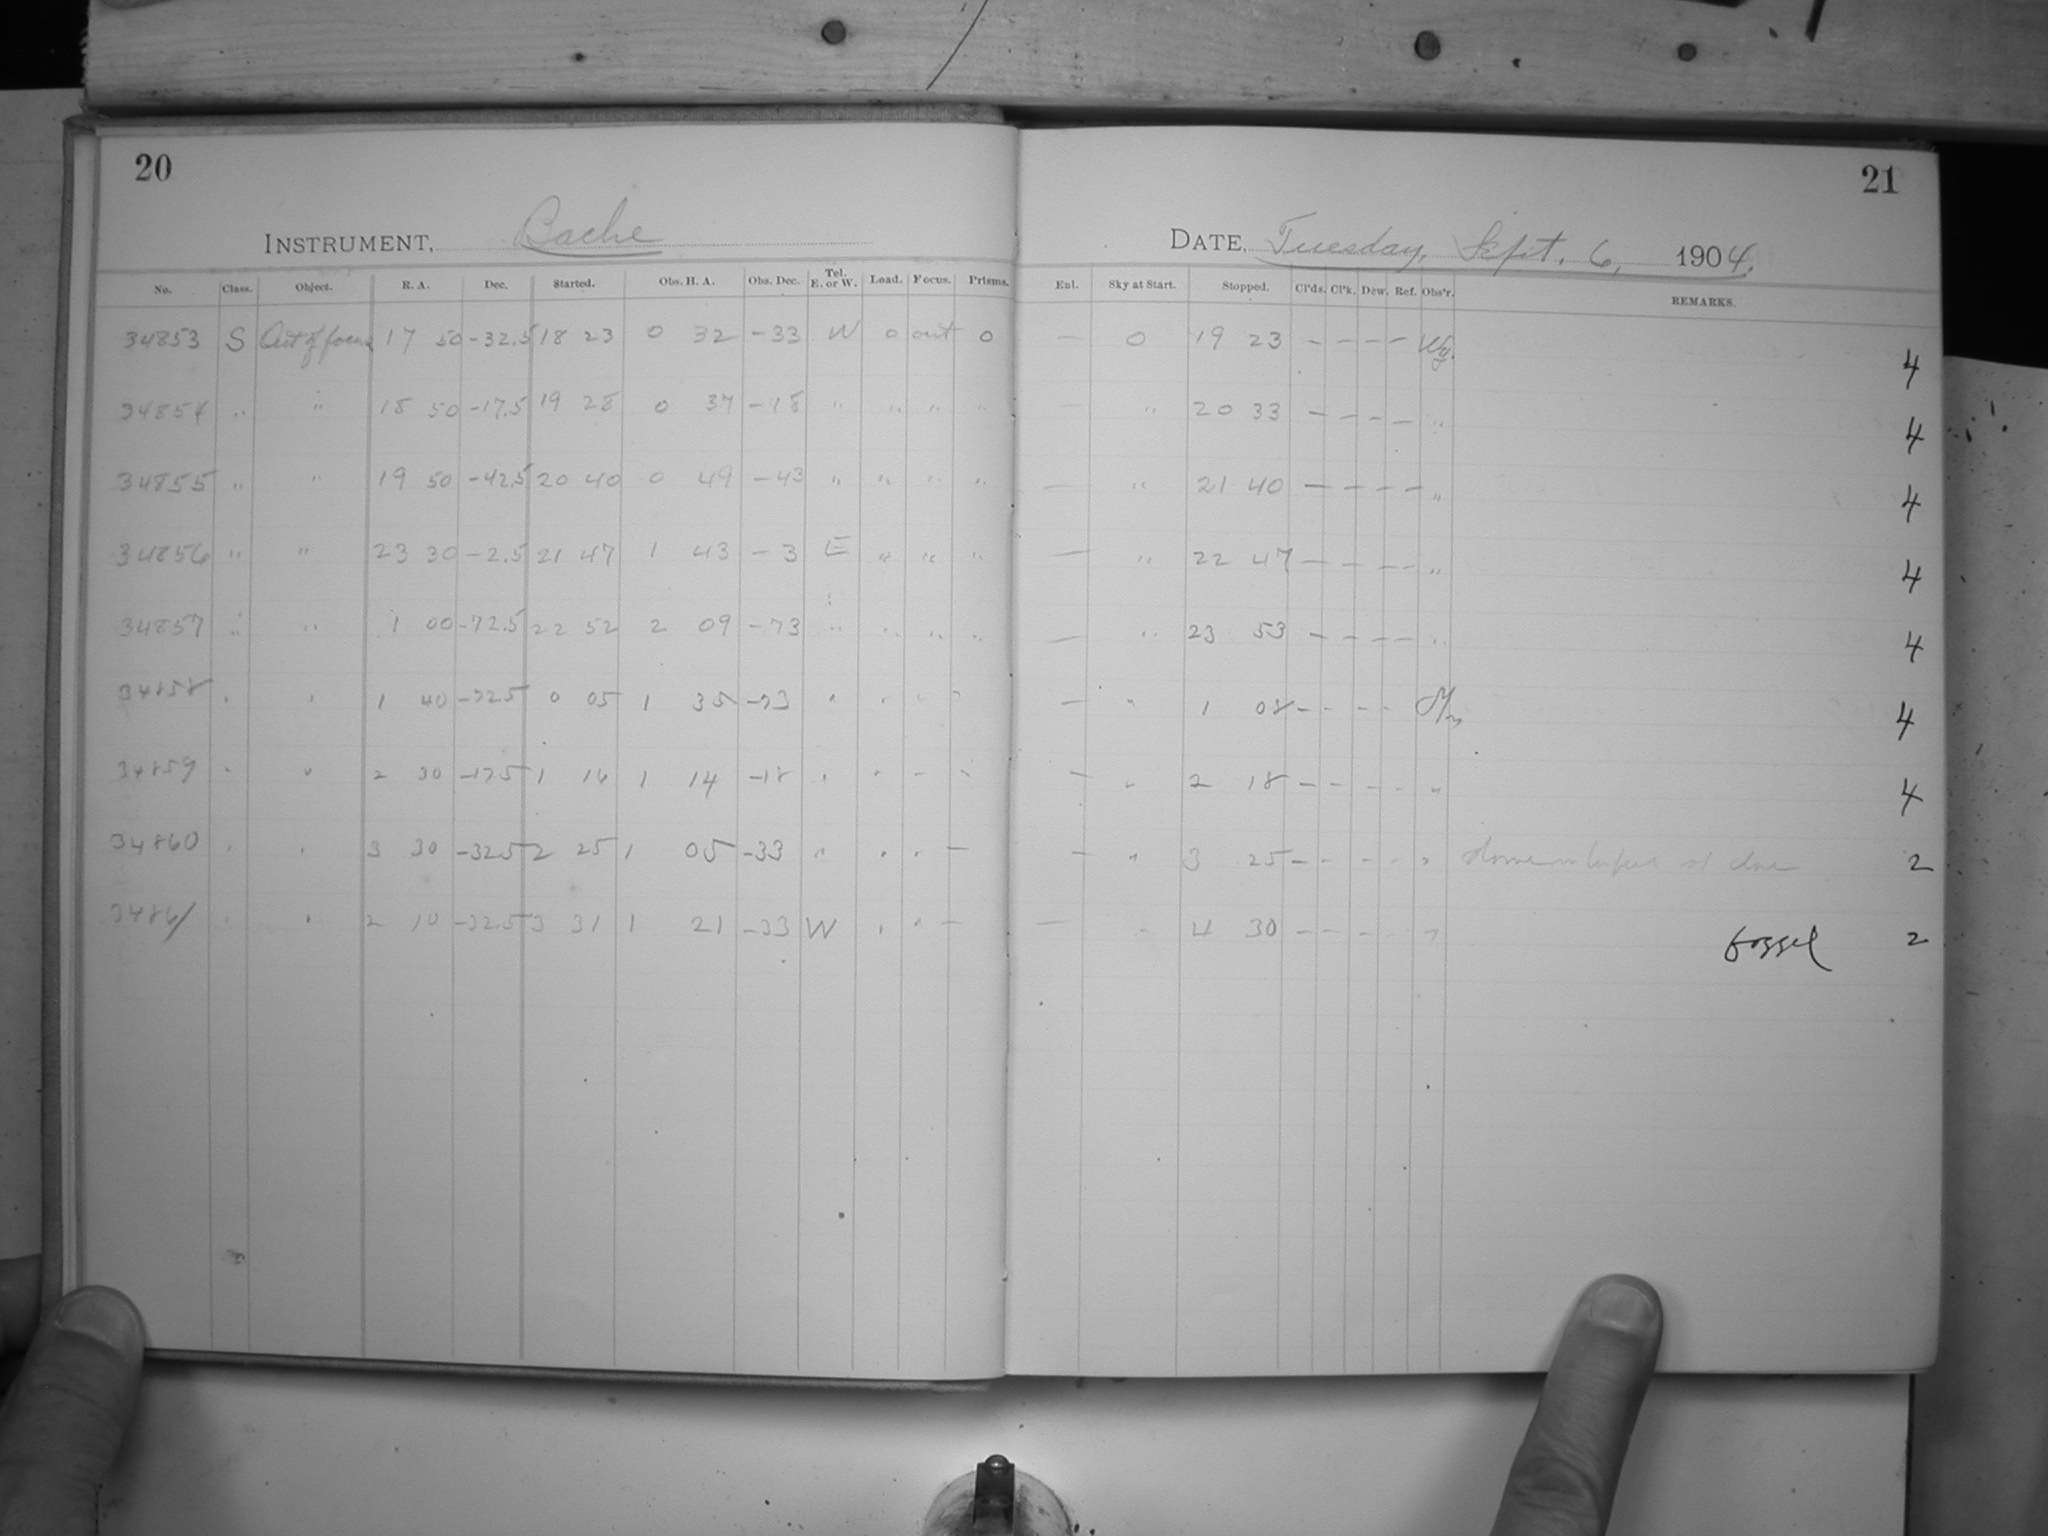 20
21
INSTRUMENT, Bache
DATE, Tuesday, Sept. 6, 1904.
No. Class. Object. R. A. Dec. Started. Obs. H. A. Obs. Dec. Tel. E. or W. Load. Focus. Prisms. Enl. Sky at Start. Stopped. Cl'ds. Cl'k. Dew. Ref. Obs'r. REMARKS.
34853 S Out of focus 17 50 -32.5 18 23 0 32 -33 W 0 out 0 — 0 19 23 - - - - 4
34854 " " 18 50 -17.5 19 28 0 37 -18 " " " " — " 20 33 - - - - " 4
34855 " " 19 50 -42.5 20 40 0 49 -43 " " " " — " 21 40 - - - - " 4
34856 " " 23 30 -2.5 21 47 1 43 -3 E " " " — " 22 47 - - - - " 4
34857 " " 1 00 -72.5 22 52 2 09 -73 " " " " — " 23 53 - - - - " 4
34858 " " 1 40 -72.5 0 05 1 35 -73 " " " " — " 1 08 - - - - 4
34859 " " 2 30 -17.5 1 16 1 14 -18 " " " " — " 2 18 - - - - " 4
34860 " " 3 30 -32.5 2 25 1 05 -33 " " " — — " 3 25 - - - - " 2
34861 " " 2 10 -32.5 3 31 1 21 -33 W " " — — " 4 30 - - - - " 2